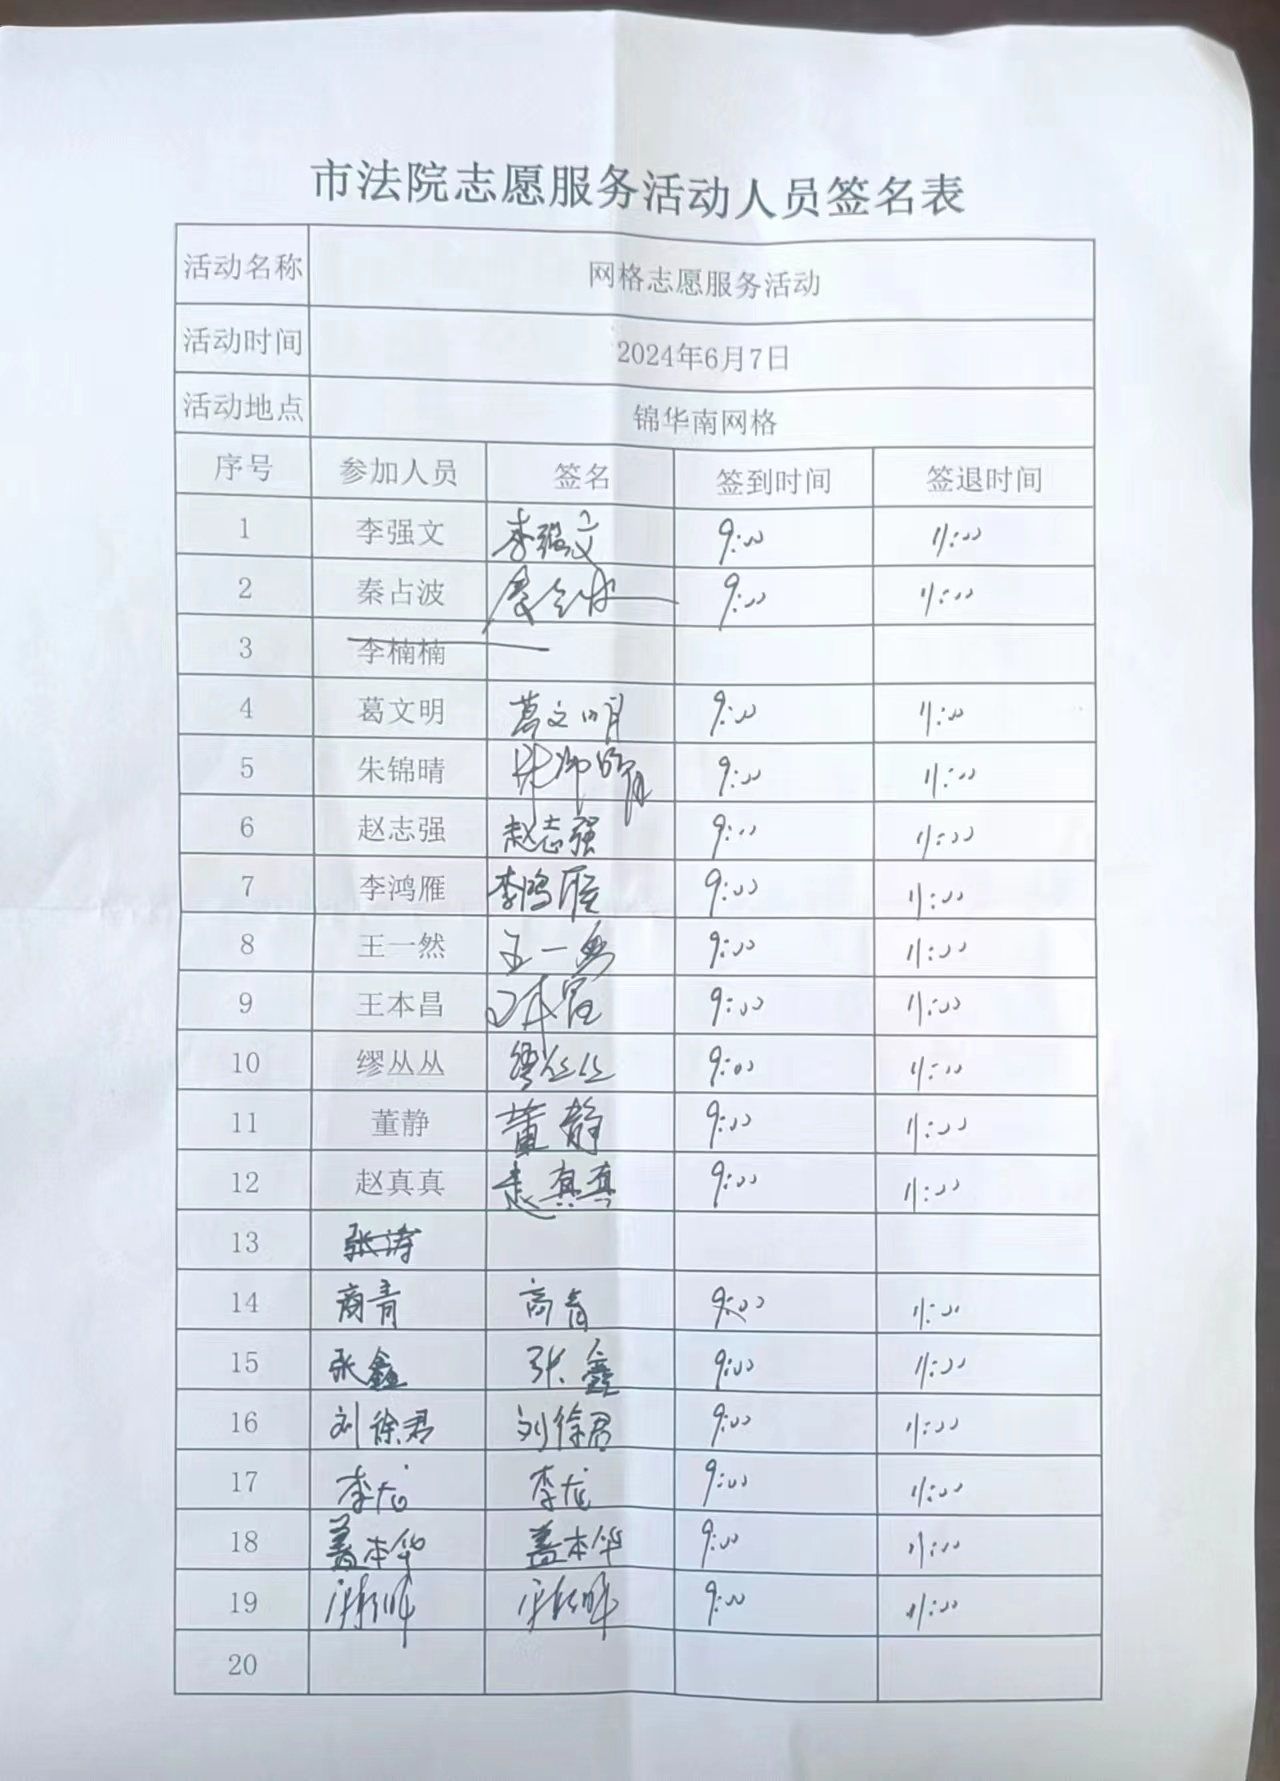 市法院志愿服务活动人员签名表
活动名称 网格志愿服务活动
活动时间 2024年6月7日
活动地点 锦华南网格
序号 参加人员 签名 签到时间 签退时间
1 李强文 李强文 9:00 11:00
2 秦占波 秦占波 9:00 11:00
3 李楠楠
4 葛文明 葛文明 9:00 11:00
5 朱锦晴 朱锦晴 9:00 11:00
6 赵志强 赵志强 9:00 11:00
7 李鸿雁 李鸿雁 9:00 11:00
8 王一然 王一然 9:00 11:00
9 王本昌 王本昌 9:00 11:00
10 缪丛丛 缪丛丛 9:00 11:00
11 董静 董静 9:00 11:00
12 赵真真 赵真真 9:00 11:00
13 张涛
14 商青 商青 9:00 11:00
15 张鑫 张鑫 9:00 11:00
16 刘徐君 刘徐君 9:00 11:00
17 李龙 李龙 9:00 11:00
18 盖本华 盖本华 9:00 11:00
19 9:00 11:00
20